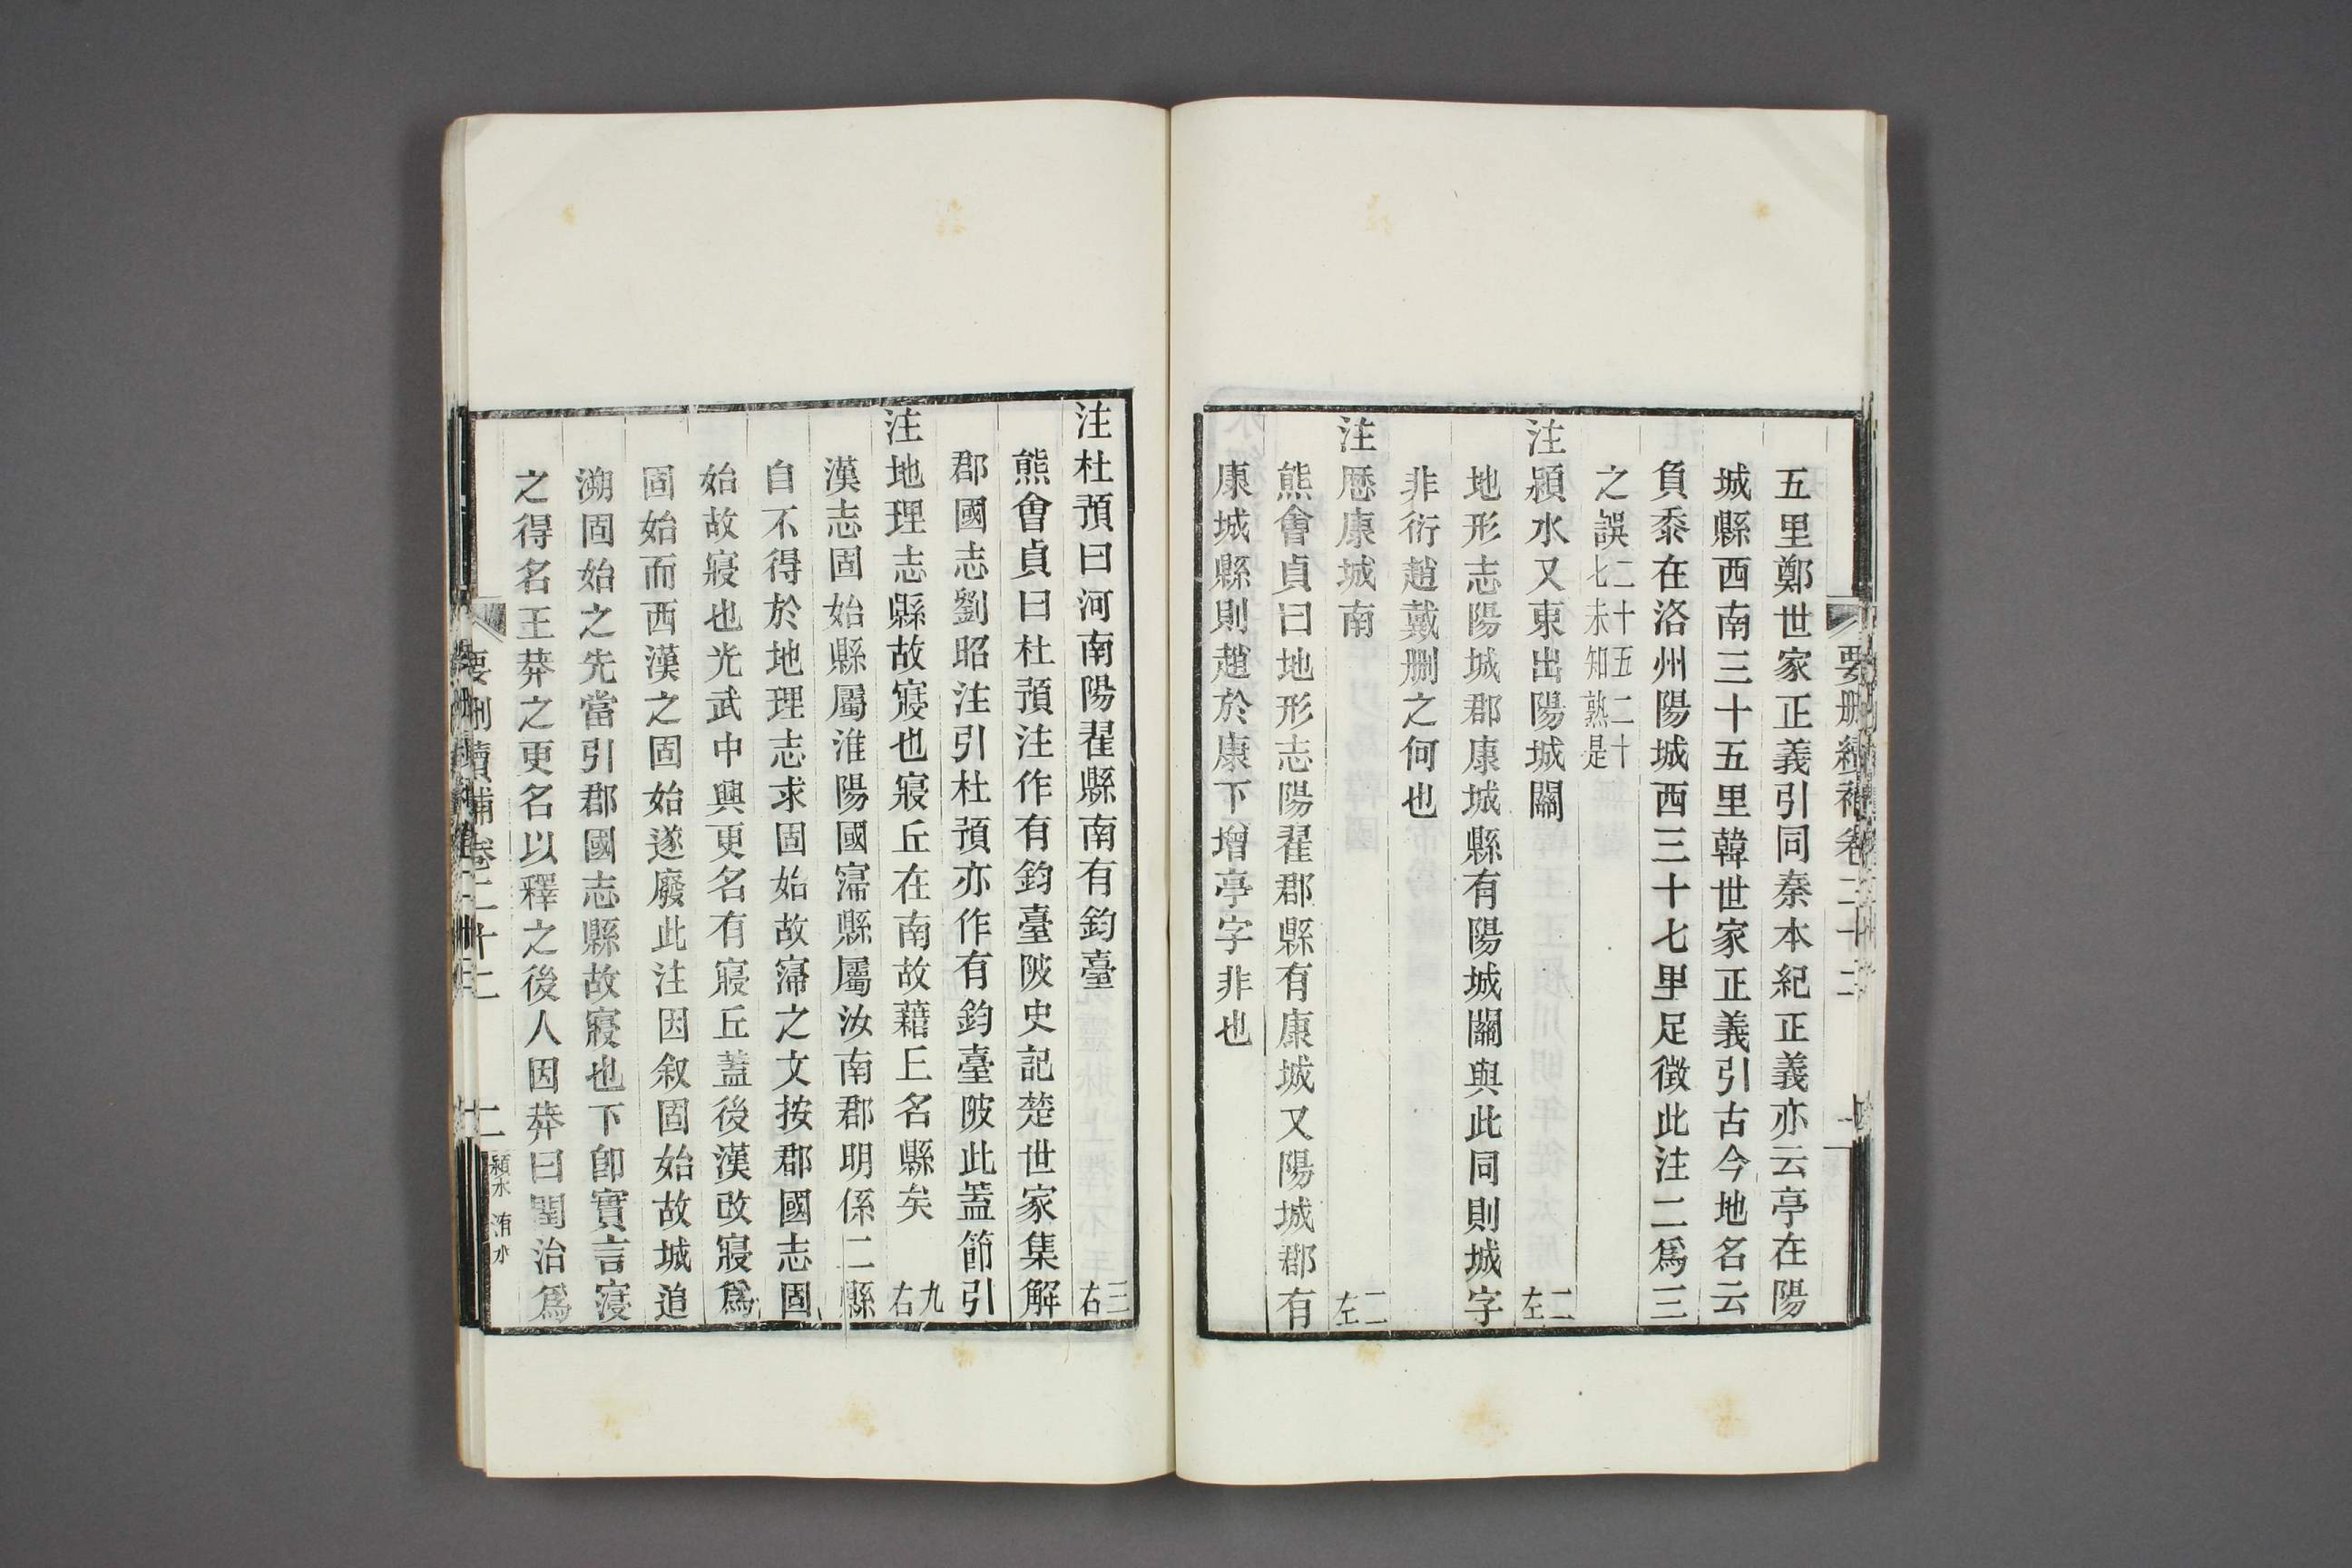 五里鄭世家正義引同秦本紀正義亦云亭在陽
城縣西南三十五里韓世家正義引古今地名云
負黍在洛州陽城西三十七里足徵此注二爲三
之誤二十五二十七未知熟是
注潁水又東出陽城關二左
地形志陽城郡康城縣有陽城關與此同則城字
非衍趙戴刪之何也
注歷康城南二左
熊會貞曰地形志陽翟郡縣有康城又陽城郡有
康城縣則趙於康下增亭字非也
注杜預曰河南陽翟縣南有鈞臺三右
熊會貞曰杜預注作有鈞臺陂史記楚世家集解
郡國志劉昭注引杜預亦作有鈞臺陂此蓋節引
注地理志縣故寢也寢丘在南故藉丘名縣矣九右
漢志固始縣屬淮陽國寖縣屬汝南郡明係二縣
自不得於地理志求固始故寖之文按郡國志固
始故寢也光武中興更名有寢丘蓋後漢改寢爲
固始而西漢之固始遂廢此注因叙固始故城追
溯固始之先當引郡國志縣故寢也下卽實言寖
之得名王莽之更名以釋之後人因莽曰閏治爲
要刪續補卷二十二 二 潁水 洧水